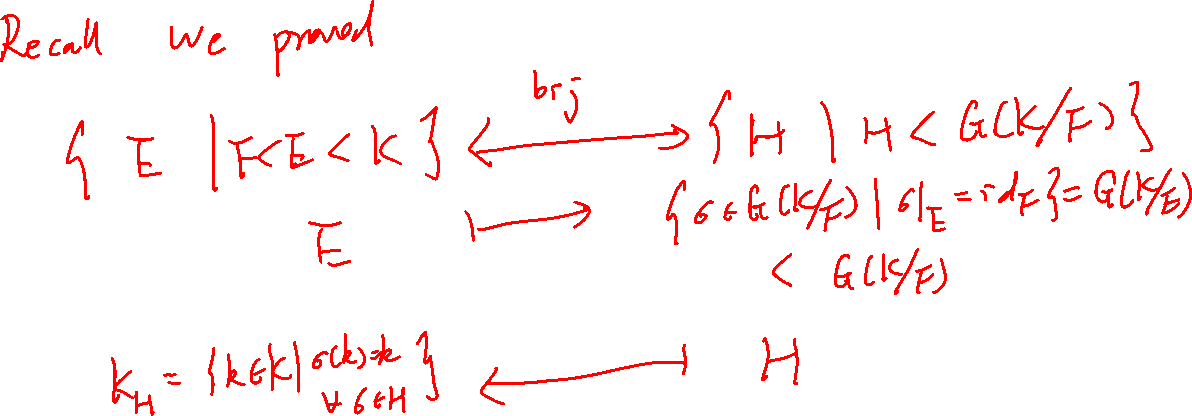 Recall we proved
{ E | F<E<K } ⟷ bij { H | H < G(K/F) }
E ⟼ { σ∈G(K/F) | σ|_E = id_F } = G(K/E)
< G(K/F)
K_H = { k∈K | σ(k)=k ∀ σ∈H } ⟻ H